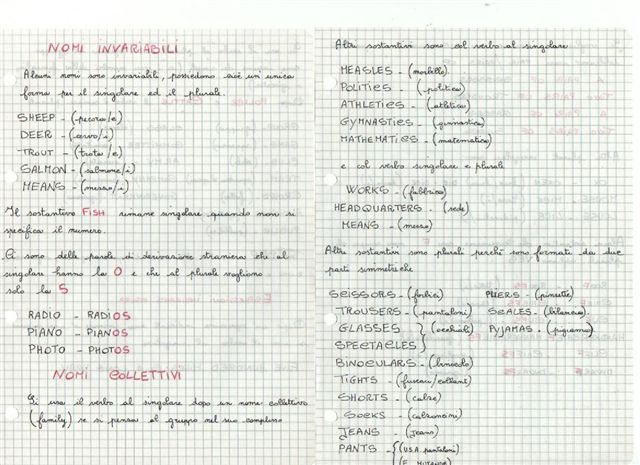 NOMI INVARIABILI
Alcuni nomi sono invariabili, possiedono cioè un'unica
forma per il singolare ed il plurale.
SHEEP - (pecora/e)
DEER - (cervo/i)
TROUT - (trota/e)
SALMON - (salmone/i)
MEANS - (mezzo/i)
Il sostantivo FISH rimane singolare quando non si
specifica il numero.
Ci sono delle parole di derivazione straniera che al
singolare hanno la O e che al plurale vogliono
solo la S
RADIO - RADIOS
PIANO - PIANOS
PHOTO - PHOTOS
NOMI COLLETTIVI
Si usa il verbo al singolare dopo un nome collettivo
(family) se si pensa al gruppo nel suo complesso
Altri sostantivi sono col verbo al singolare
MEASLES - (morbillo)
POLITICS - (politica)
ATHLETICS - (atletica)
GYMNASTICS - (ginnastica)
MATHEMATICS - (matematica)
e col verbo singolare e plurale
WORKS - (fabbrica)
HEADQUARTERS - (sede)
MEANS - (mezzo)
Altri sostantivi sono plurali perché sono formati da due
parti simmetriche
SCISSORS - (forbici) PLIERS - (pinzette)
TROUSERS - (pantaloni) SCALES - (bilancia)
GLASSES } (occhiali) PYJAMAS - (pigiama)
SPECTACLES }
BINOCULARS - (binocolo)
TIGHTS - (fuseau/collant)
SHORTS - (calze)
SOCKS - (calzoncini)
JEANS - (jeans)
PANTS - { (U.S.A. pantaloni)
MUTANDE